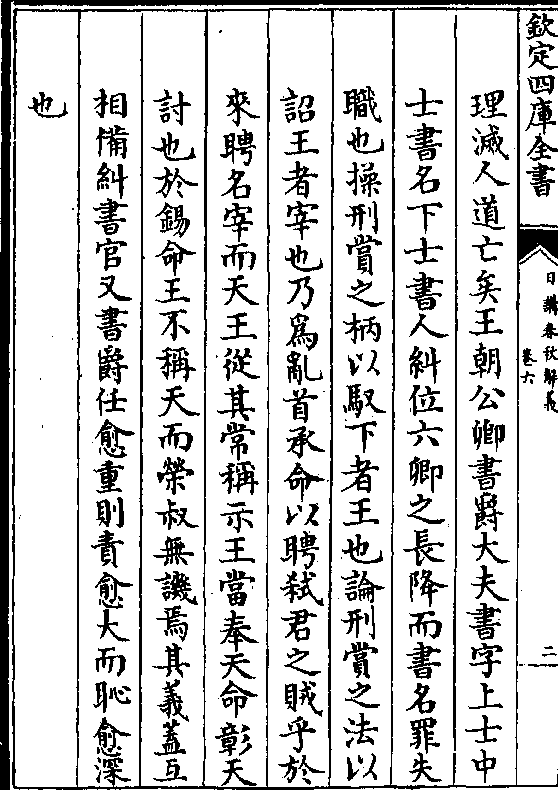 欽定四庫全書
日講春秋解義
卷六
二
理滅人道亡矣王朝公卿書爵大夫書字上士中
士書名下士書人糾位六卿之長降而書名罪失
職也操刑賞之柄以馭下者王也論刑賞之法以
詔王者宰也乃為亂首承命以聘弒君之賊乎於
來聘名宰而天王從其常稱示王當奉天命彰天
討也於錫命王不稱天而榮叔無譏焉其義蓋互
相備糾書官又書爵任愈重則責愈大而恥愈深
也